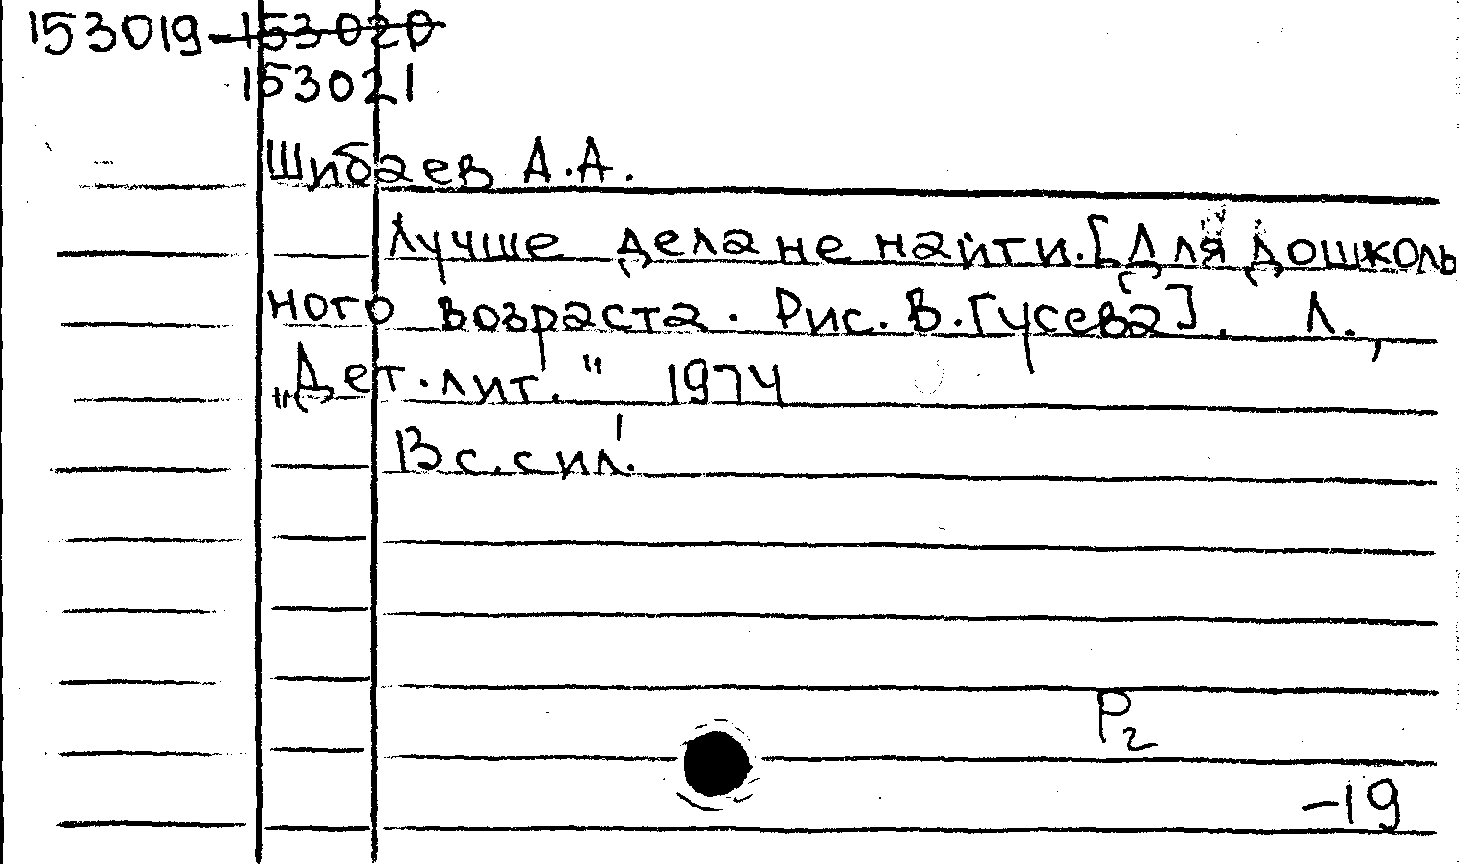 153019-153020
153021
Шибаев А.А.
Лучше дела не найти. [Для дошколь
ного возраста. Рис. В. Гусева]. Л.,
„Дет. лит." 1974
В с. сил.
Р2
-19